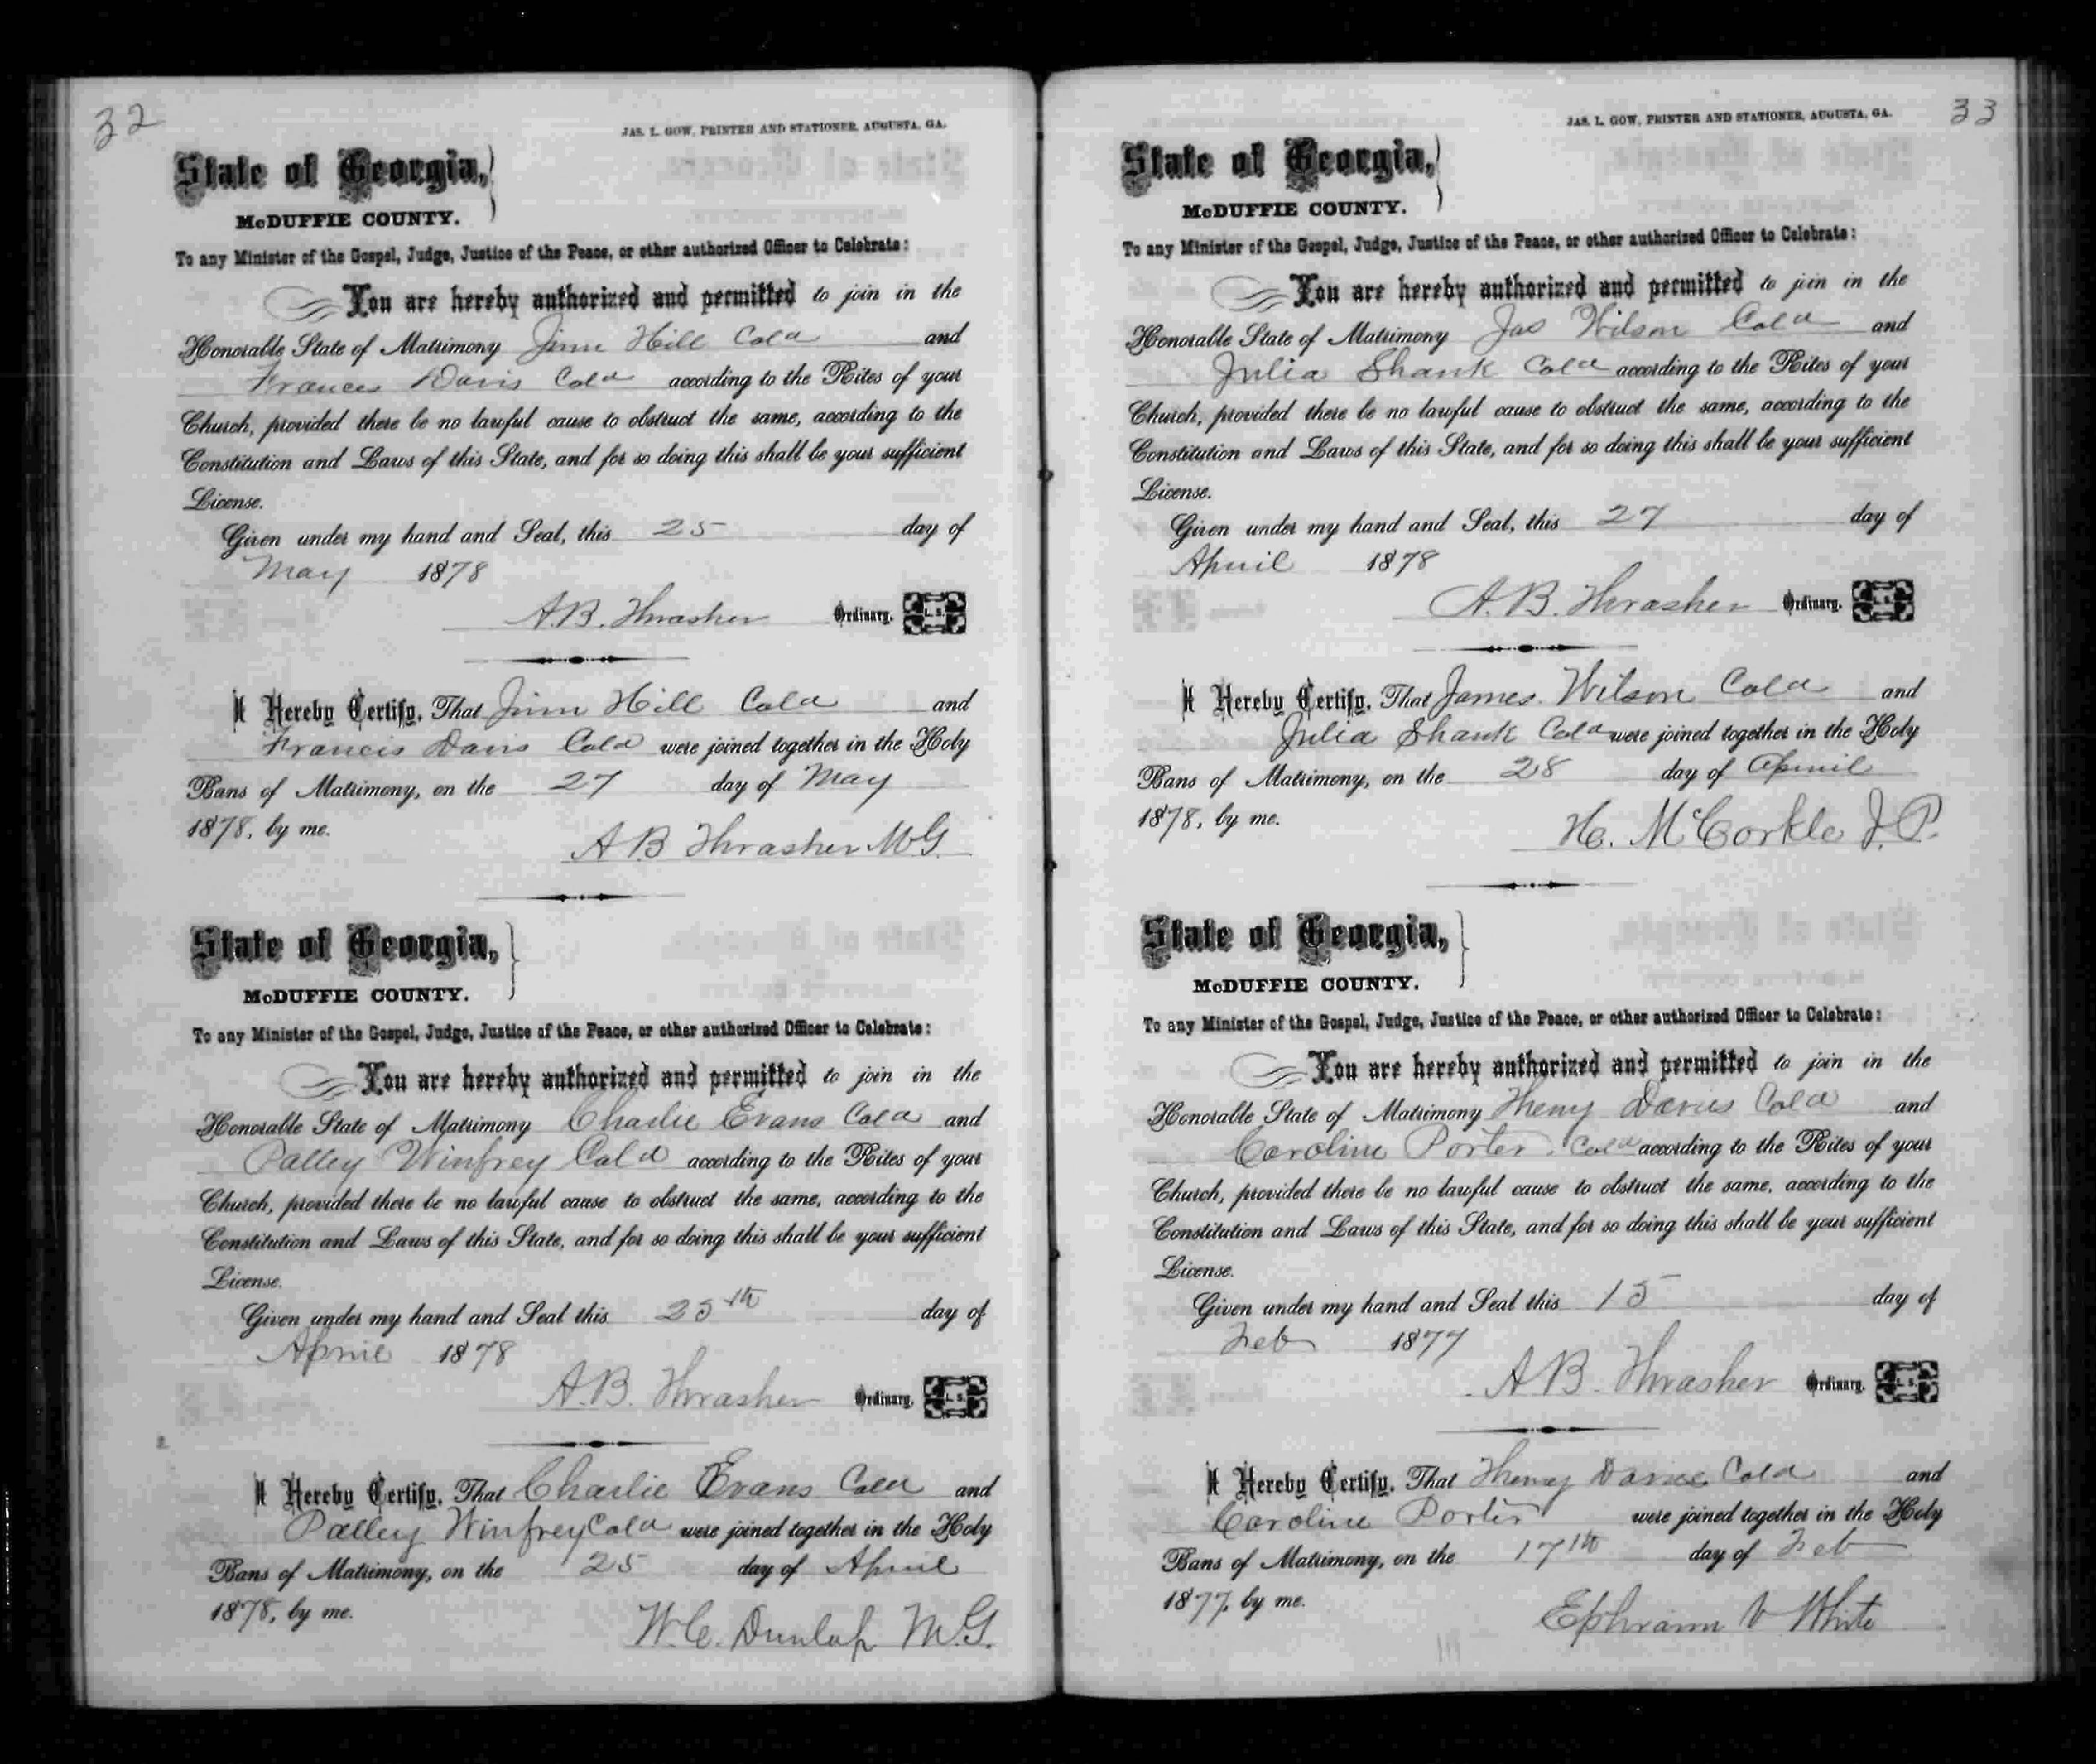 32
JAS. L. GOW, PRINTER AND STATIONER, AUGUSTA, GA.
State of Georgia,
McDUFFIE COUNTY.
To any Minister of the Gospel, Judge, Justice of the Peace, or other authorized Officer to Celebrate:
You are hereby authorized and permitted to join in the
Honorable State of Matrimony Jim Hill Cold and
Frances Davis Cold according to the Rites of your
Church, provided there be no lawful cause to obstruct the same, according to the
Constitution and Laws of this State, and for so doing this shall be your sufficient
License.
Given under my hand and Seal, this 25 day of
May 1878
A.B. Thrasher Ordinary. L. S.
I Hereby Certify, That Jim Hill Cold and
Francis Davis Cold were joined together in the Holy
Bans of Matrimony, on the 27 day of May
1878, by me.
A B Thrasher M.G.
State of Georgia,
McDUFFIE COUNTY.
To any Minister of the Gospel, Judge, Justice of the Peace, or other authorized Officer to Celebrate:
You are hereby authorized and permitted to join in the
Honorable State of Matrimony Charlie Evans Cold and
Palley Winfrey Cold according to the Rites of your
Church, provided there be no lawful cause to obstruct the same, according to the
Constitution and Laws of this State, and for so doing this shall be your sufficient
License.
Given under my hand and Seal this 25th day of
April 1878
A.B. Thrasher Ordinary. L. S.
I Hereby Certify, That Charlie Evans Cold and
Palley Winfrey Cold were joined together in the Holy
Bans of Matrimony, on the 25 day of April
1878, by me.
W.C. Dunlap M.G.
33
JAS. L. GOW, PRINTER AND STATIONER, AUGUSTA, GA.
State of Georgia,
McDUFFIE COUNTY.
To any Minister of the Gospel, Judge, Justice of the Peace, or other authorized Officer to Celebrate:
You are hereby authorized and permitted to join in the
Honorable State of Matrimony Jas Wilson Cold and
Julia Shank Cold according to the Rites of your
Church, provided there be no lawful cause to obstruct the same, according to the
Constitution and Laws of this State, and for so doing this shall be your sufficient
License.
Given under my hand and Seal, this 27 day of
April 1878
A.B. Thrasher Ordinary. L. S.
I Hereby Certify, That James Wilson Cold and
Julia Shank Cold were joined together in the Holy
Bans of Matrimony, on the 28 day of April
1878, by me.
H. McCorkle J.P.
State of Georgia,
McDUFFIE COUNTY.
To any Minister of the Gospel, Judge, Justice of the Peace, or other authorized Officer to Celebrate:
You are hereby authorized and permitted to join in the
Honorable State of Matrimony Cold and
Caroline Porter Cold according to the Rites of your
Church, provided there be no lawful cause to obstruct the same, according to the
Constitution and Laws of this State, and for so doing this shall be your sufficient
License.
Given under my hand and Seal this 15 day of
Feb 1877
A B. Thrasher Ordinary. L. S.
I Hereby Certify, That Cold and
Caroline Porter were joined together in the Holy
Bans of Matrimony, on the 17th day of Feb
1877, by me.
Ephraim V White